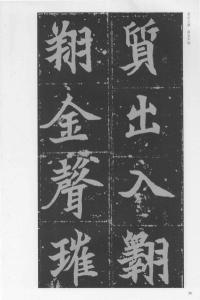 質出入翺
翔金聲璀